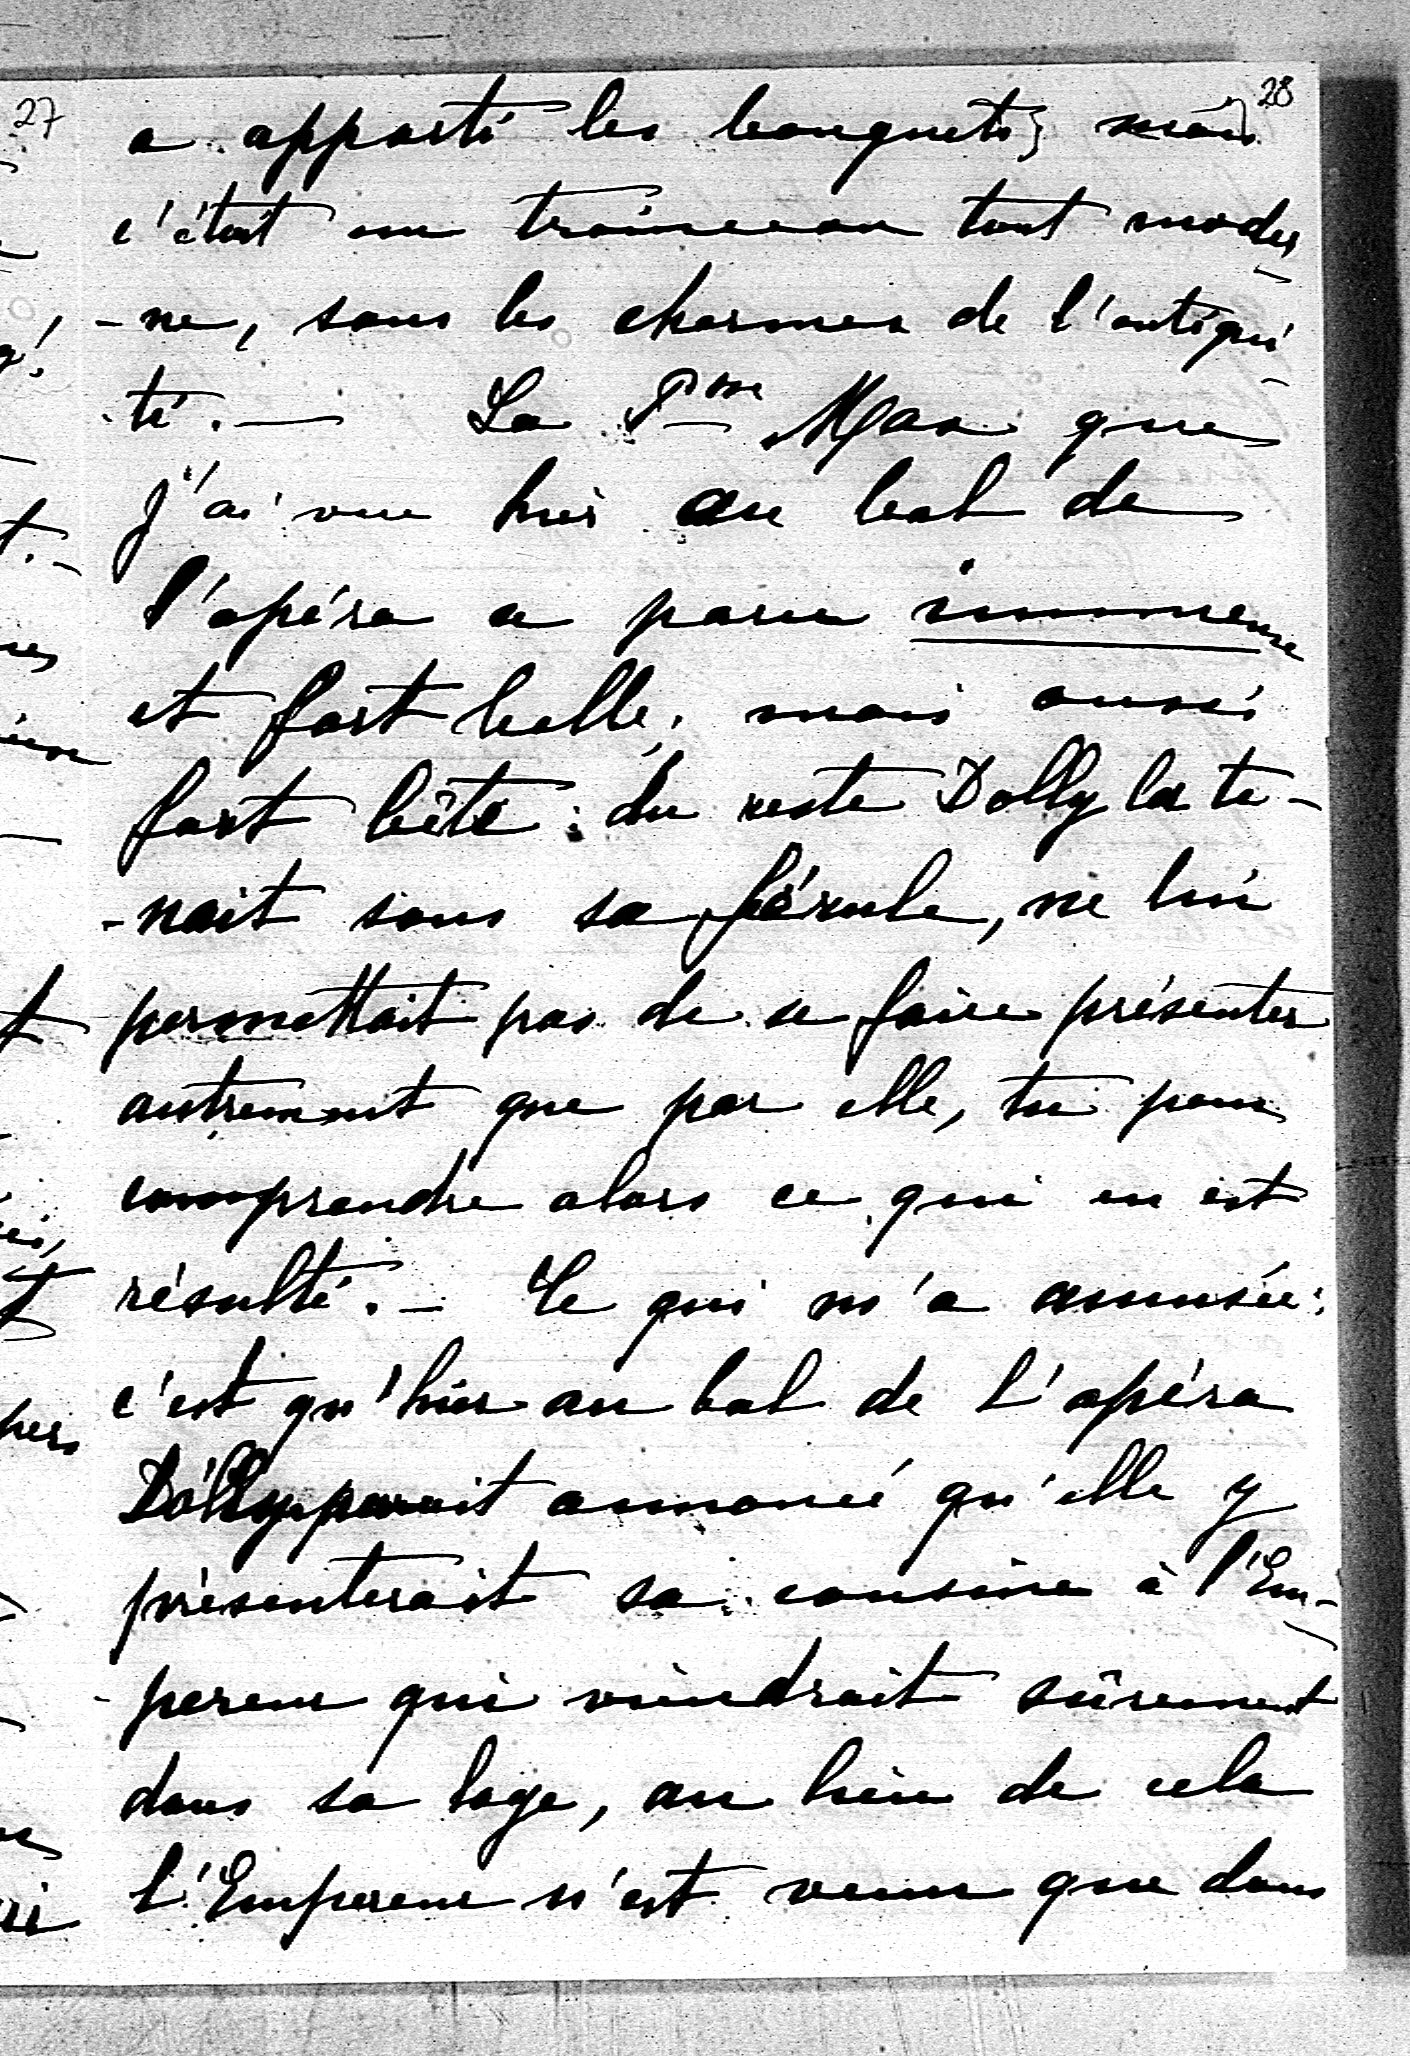 27
28
a apporté les bouquets; mais
c'était un traineau tout moder
-ne, sans les charmes de l'antiqui
té. — La Psse Max que
j'ai vue hier au bal de
l'opéra a paru immense
et fort belle, mais aussi
fort bête: du reste Dolly la te-
-nait sous sa férule, ne lui
permettait pas de se faire présenter
autrement que par elle, tu peux
comprendre alors ce qui en est
résulté. — Ce qui m'a amusée:
c'est qu'hier au bal de l'opéra
Dolly avait annoncé qu'elle y
présenterait sa cousine à l'Em-
-pereur qui viendrait sûrement
dans sa loge, au lieu de cela
l'Empereur n'est venu que dans